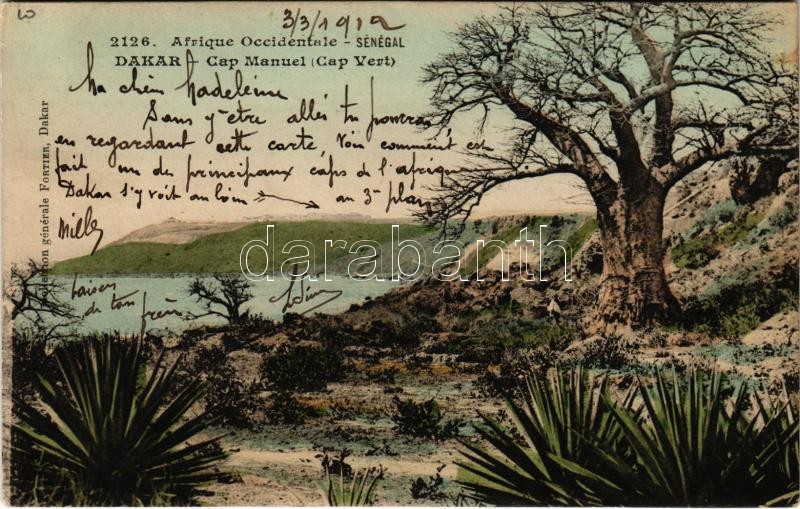 3/3/1912
2126. Afrique Occidentale - SÉNÉGAL
DAKAR - Cap Manuel (Cap Vert)
Ma chère Madeleine
Sans y-être allée tu pourras
en regardant cette carte, voir comment est
fait un des principaux caps de l'afrique
Dakar s'y voit au loin → au 3e plan
Mille
baisers
de ton frère
Collection générale FORTIER, Dakar
darabanth